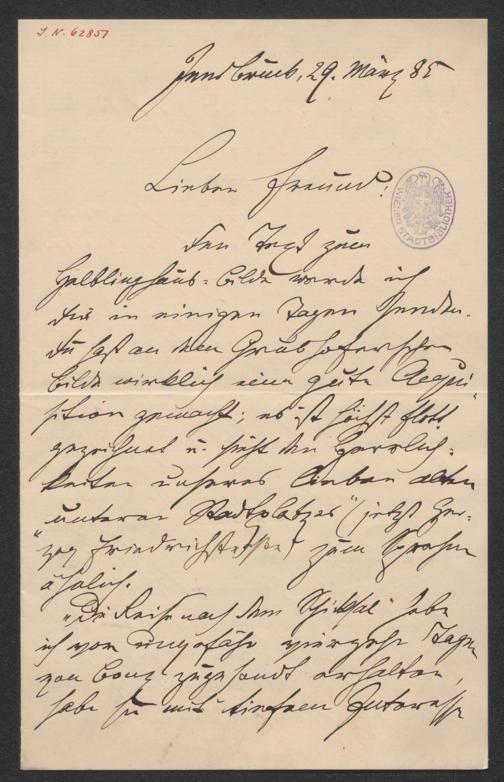 J. N. 62857
Innsbruck, 29. März 85
Lieber Freund!
WIENER STADTBIBLIOTHEK
Den Text zum
Helblinghaus-Bilde werde ich
Dir in einigen Tagen senden.
Du hast an dem Grubhoferschen
Bilde wirklich eine gute Acqui-
sition gemacht; es ist höchst flott
gezeichnet u. sieht den Herrlich-
keiten unseres lieben alten
"unteren Stadtplatzes" (jetzt Her-
zog Friedrichstraße) zum Sprechen
ähnlich.
"Die Reise nach dem Schicksal" habe
ich vor ungefähr vierzehn Tagen
von Bonz zugesandt erhalten,
habe sie mit tiefem Interesse